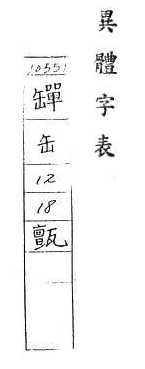 異體字表
10551
缶
12
18